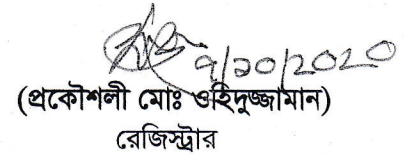 ৭/১০/2020
(প্রকৌশলী মোঃ ওহিদুজ্জামান)
রেজিস্ট্রার